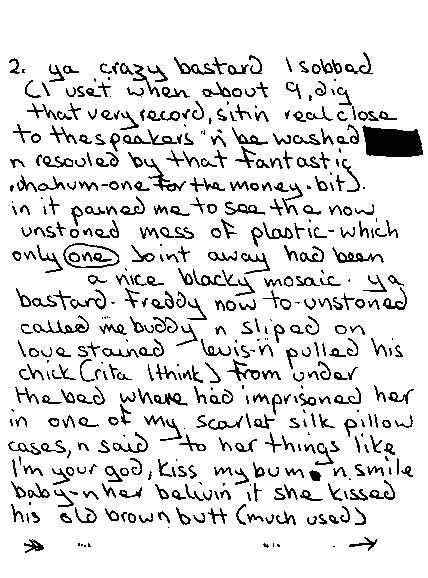 2. ya crazy bastard I sobbed
(I uset when about 9, dig
that very record, sitin real close
to the speakers 'n be washed
n resouled by that fantastic
whahum-one for the money-bit).
in it pained me to see the now
unstoned mess of plastic-which
only one joint away had been
a nice blacky mosaic. ya
bastard. Freddy now to-unstoned
called me buddy n sliped on
love stained levis-n pulled his
chick (rita I think) from under
the bed where had imprisoned her
in one of my scarlet silk pillow
cases, n said to her things like
I'm your god, kiss my bum. n smile
baby-n her belivin it she kissed
his old brown butt (much used)